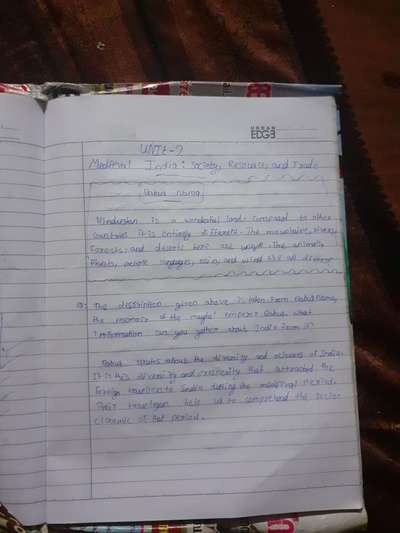 URBAN
EDGE
UNIT-7
Medieval India: Society, Resources, and Trade
Babur Nama
Hindustan is a wonderful land. Compared to other
countries it is entirely different. The mountains, rivers,
Forests and deserts here are unique. The animals,
Plants, people languages, rain, and wind are all different
The description given above is taken from
the memoir of the mughal emperor Babur. what
information can you gather about India from it?
Babur writes about the diversity and richness of India.
It is this diversity and that attracted the
foreign travellers to India during the medieval Period.
Their travelogues help us to comprehend the socio-
of that period.